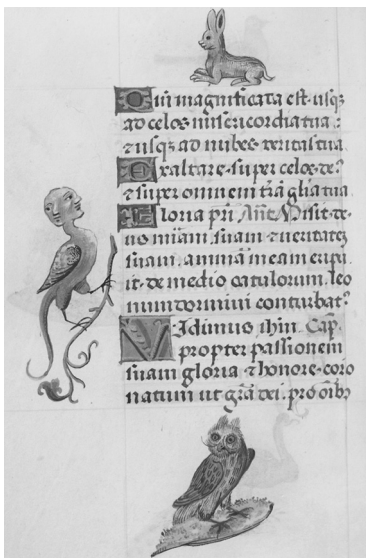 Qm̄ magnificata est usqꝫ
ad celos misericordia tua :
⁊ usqꝫ ad nubes veritas tua
Exaltare super celos deꝰ
⁊ super omnem trā gliā tua
Gloria pri. Ant̄. Misit de
us miam̄ suam ⁊ veritatēꝫ
suam. animā meam eripu
it. de medio catulorum leo
num dormivi conturbatꝰ
Vidimus ihm̄. Cap.
propter passionem
suam gloria ⁊ honore coro
natum ut grā dei. pro oībꝰ